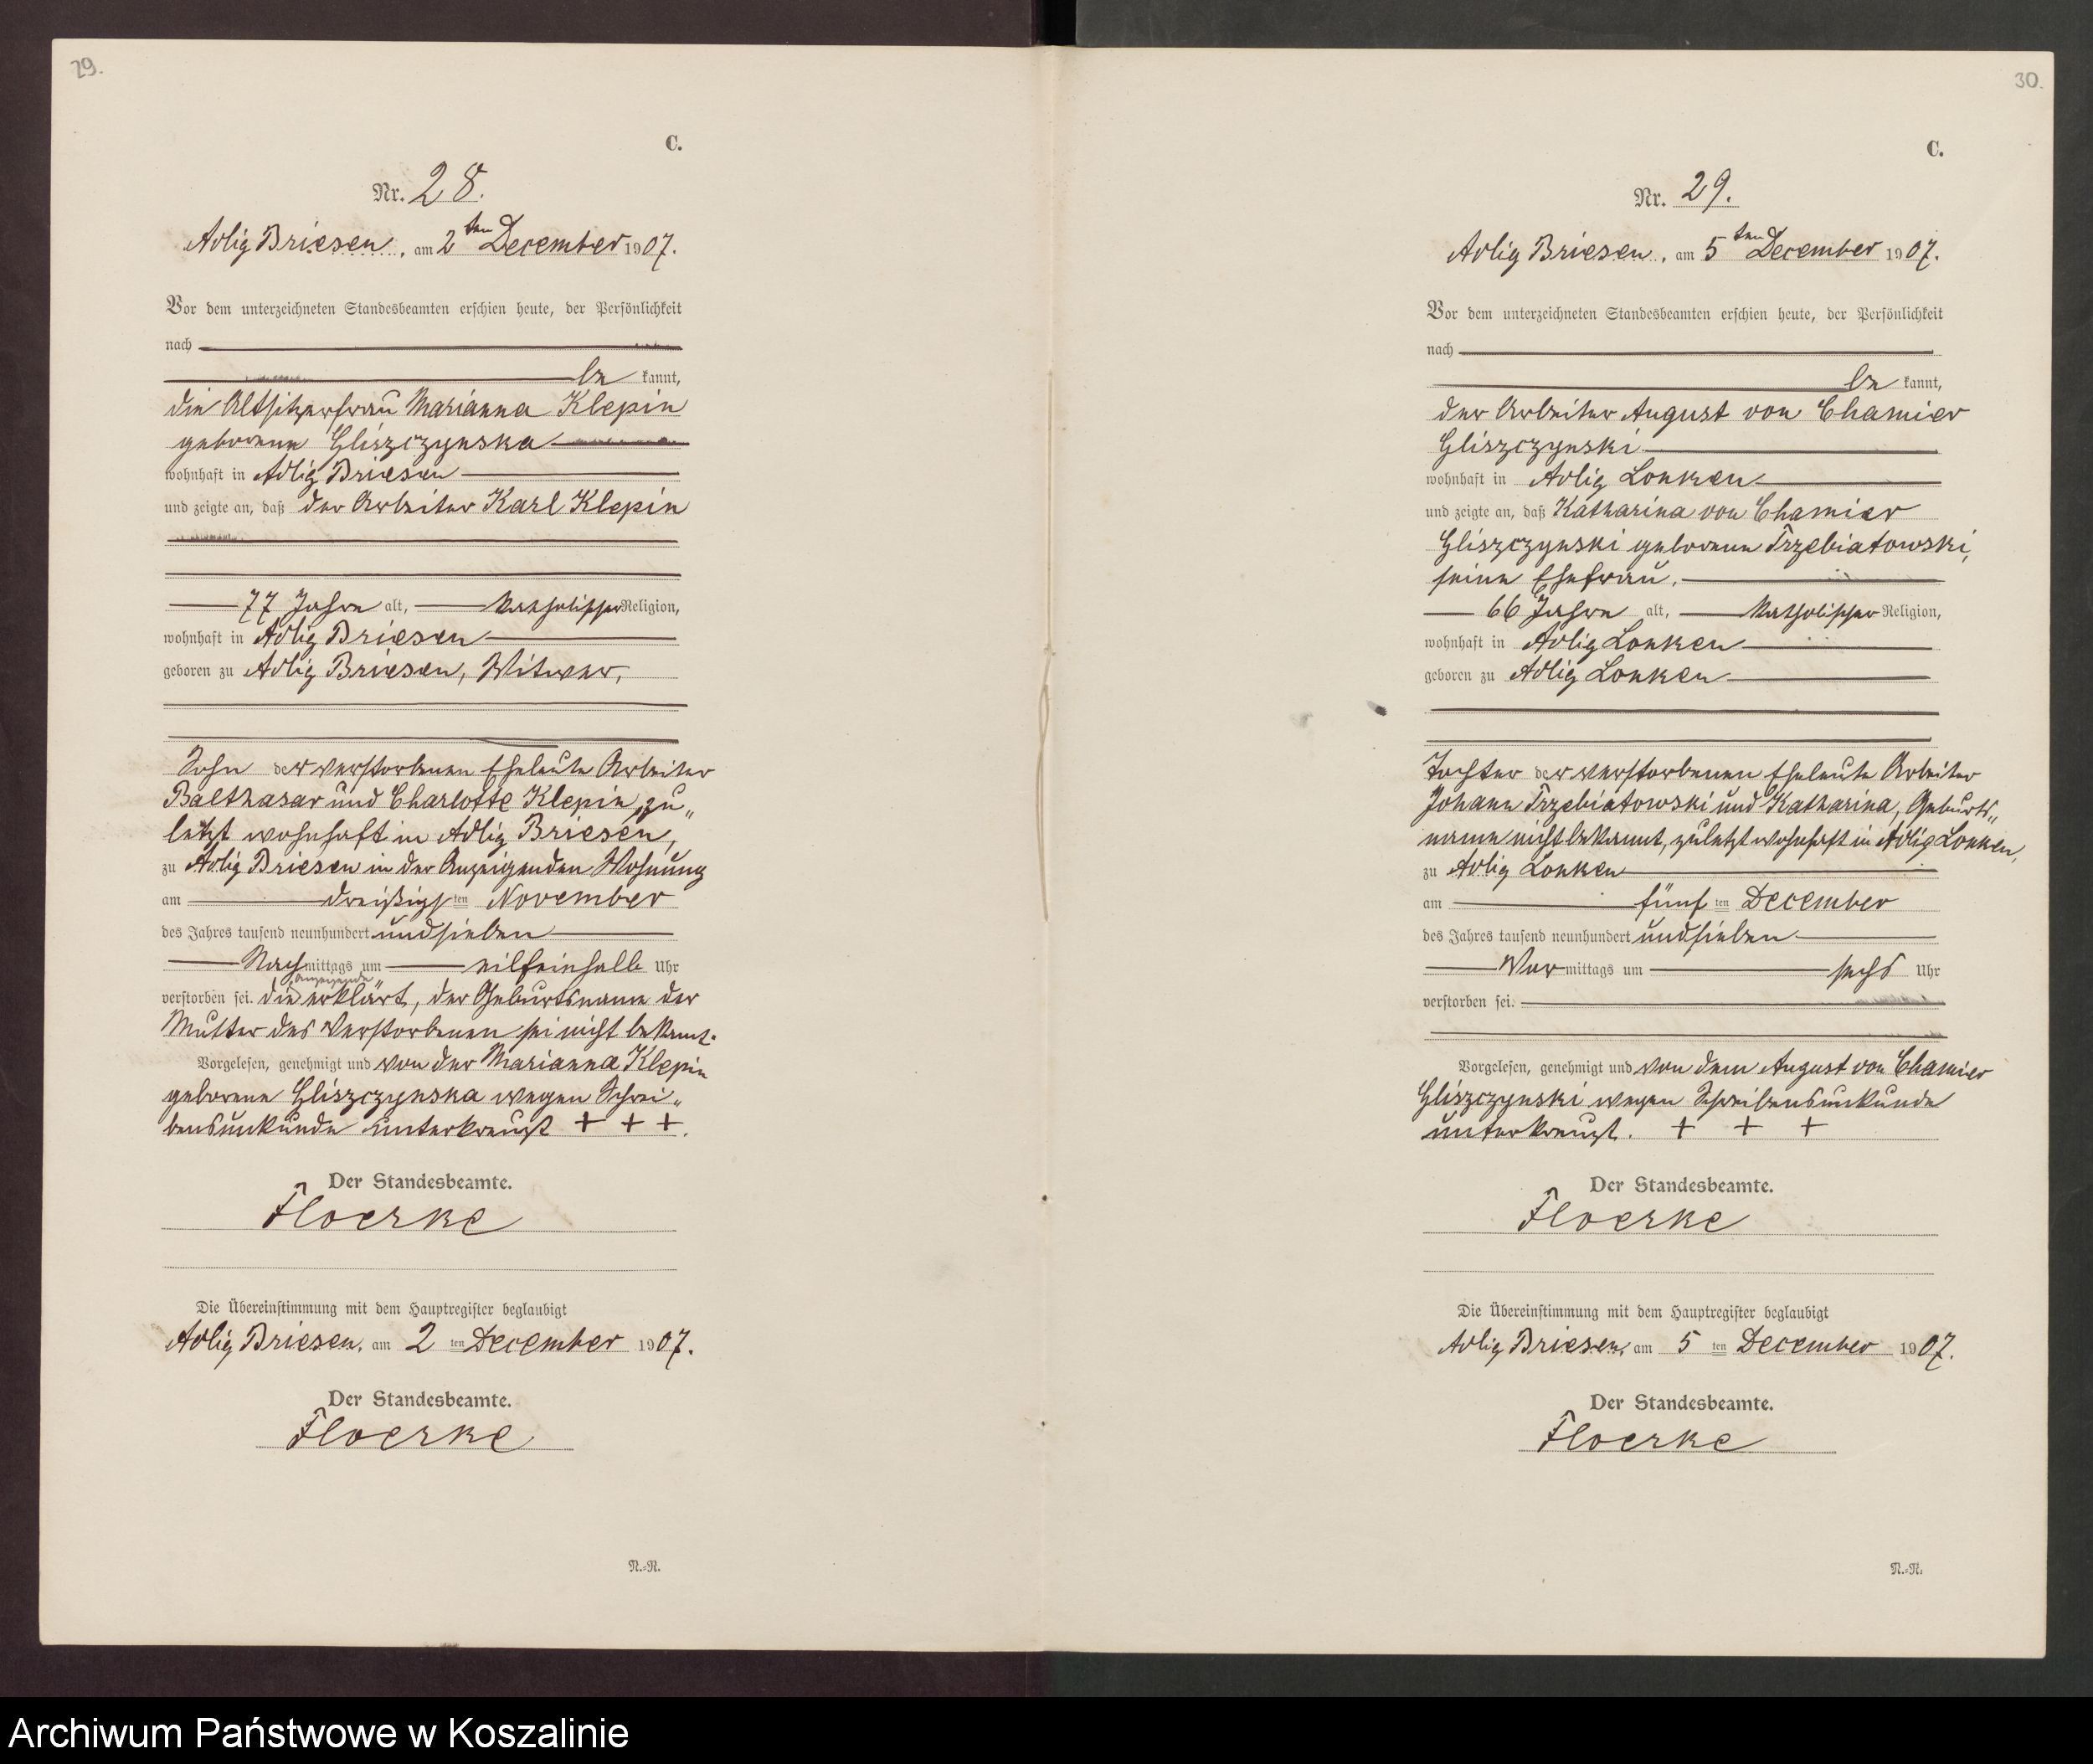 29.
C.
Nr. 28.
Adlig Briesen, am 2ten December 1907.
Vor dem unterzeichneten Standesbeamten erschien heute, der Persönlichkeit
nach
be kannt,
die Altsitzerfrau Marianna Klepin
geborene Gliszczynska
wohnhaft in Adlig Briesen
und zeigte an, daß der Arbeiter Karl Klepin
77 Jahre alt, katholischer Religion,
wohnhaft in Adlig Briesen
geboren zu Adlig Briesen, Witwer,
Sohn der verstorbenen Eheleute Arbeiter
Balthasar und Charlotte Klepin, zu„
letzt wohnhaft in Adlig Briesen,
zu Adlig Briesen in der Anzeigenden Wohnung
am dreißigsten November
des Jahres tausend neunhundert und sieben
Nachmittags um elfeinhalb Uhr
verstorben sei. Die Anzeigende erklärt, der Geburtsname der
Mutter des Verstorbenen sei nicht bekannt.
Vorgelesen, genehmigt und von der Marianna Klepin
geborene Gliszczynska wegen Schrei„
bensunkunde unterkreuzt + + +.
Der Standesbeamte.
Floerke
Die Übereinstimmung mit dem Hauptregister beglaubigt
Adlig Briesen, am 2 ten December 1907.
Der Standesbeamte.
Floerke
N.-R.
30.
C.
Nr. 29.
Adlig Briesen, am 5ten December 1907.
Vor dem unterzeichneten Standesbeamten erschien heute, der Persönlichkeit
nach
be kannt,
der Arbeiter August von Chamier
Gliszczynski
wohnhaft in Adlig Lonken
und zeigte an, daß Katharina von Chamier
Gliszczynski geborene Trzebiatowski,
seine Ehefrau,
66 Jahre alt, katholischer Religion,
wohnhaft in Adlig Lonken
geboren zu Adlig Lonken
Tochter der verstorbenen Eheleute Arbeiter
Johann Trzebiatowski und Katharina, Geburts„
name nicht bekannt, zuletzt wohnhaft in Adlig Lonken,
zu Adlig Lonken
am fünf ten December
des Jahres tausend neunhundert und sieben
Vormittags um sechs Uhr
verstorben sei.
Vorgelesen, genehmigt und von dem August von Chamier
Gliszczynski wegen Schreibensunkunde
unterkreuzt. + + +
Der Standesbeamte.
Floerke
Die Übereinstimmung mit dem Hauptregister beglaubigt
Adlig Briesen, am 5 ten December 1907.
Der Standesbeamte.
Floerke
N.-R.
Archiwum Państwowe w Koszalinie